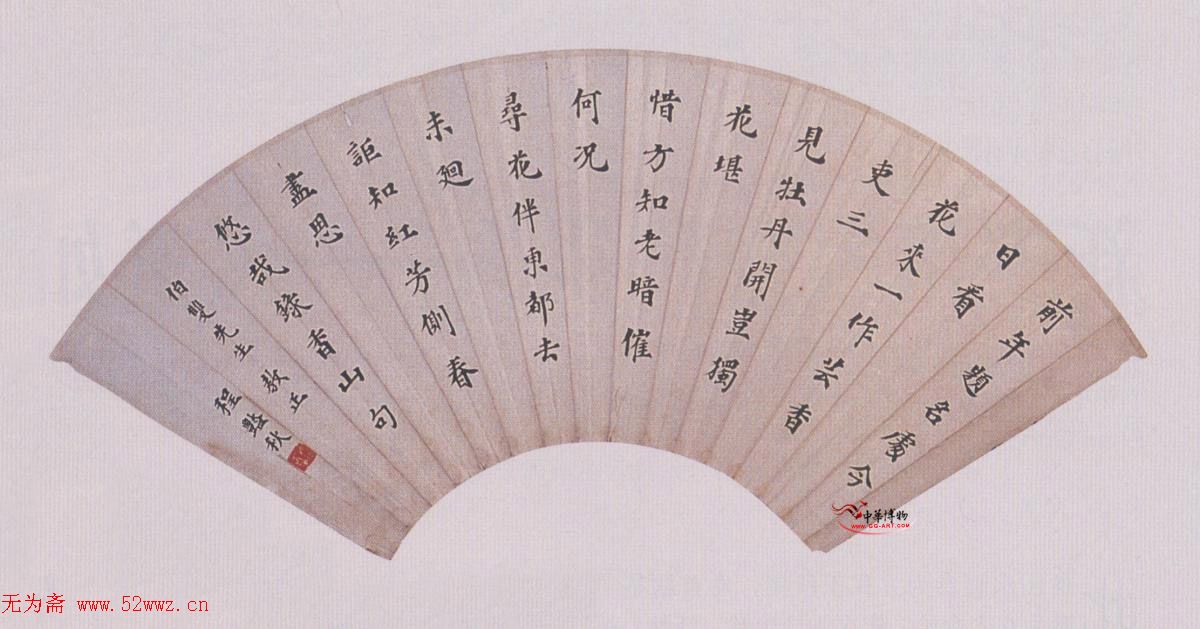 前年題名處今
日看
花來一作芸香
吏三
見牡丹開豈獨
花堪
惜方知老暗催
何况
尋花伴東都去
未廻
詎知紅芳側春
盡思
悠哉錄香山句
伯雙先生教正
程豔秋
中華博物
WWW.GG-ART.COM
无为斋 www.52wwz.cn